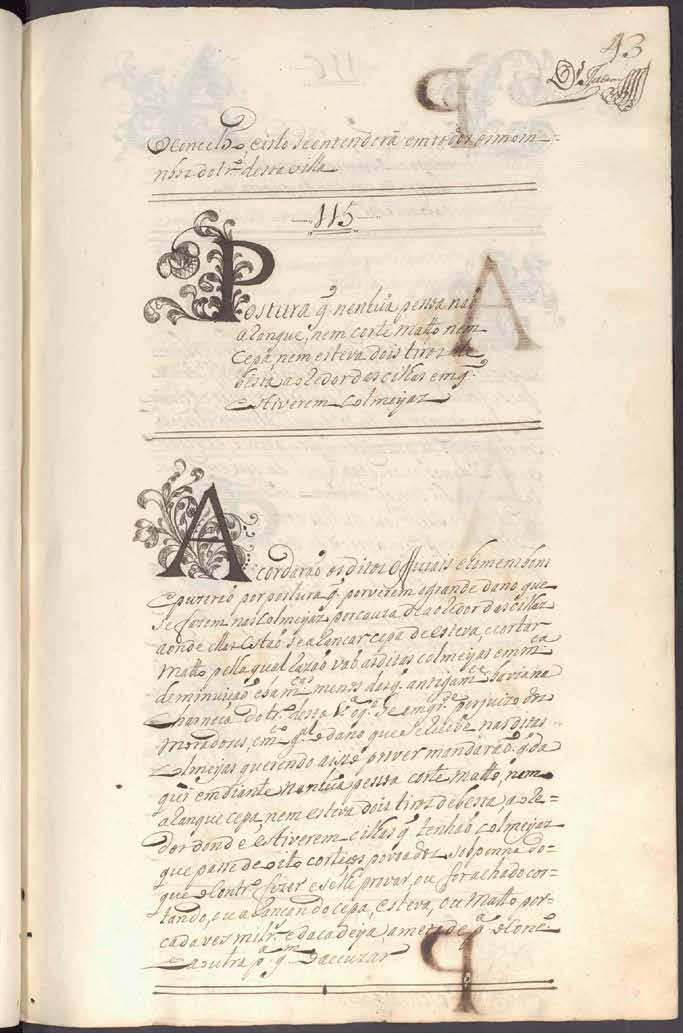 43
o Concelho, e isto se entenderá em todos os moin=
nhos do tr.º desta villa
115
Postura q̃ nenhũa pessoa nao
a Ranque, nem corte matto nem
Cepa, nem esteva dois tiros de
besta ao Redor das cilhas em q̃.
estiverem Colmeyas
Acordarão os ditos officiais e homens bons
e puzerão por postura q̃. por verem a grande dano que
se fazem nas Colmeyas por cauza de ao Redor das cilhas
aonde ellas estão se a Rancar cepa de esteva, e cortar
Matto, pella qual Razaõ vaõ as ditas colmeyas em m.ᵗᵃ
deminuiçaõ, e sam m.ᵗᵃˢ menos das q̃. antigam.ᵗᵉ havia na
Charneca do tr.º desta V.ª o q̃. he em gr.ᵈᵉ perjuizo dos
Moradores, em g.ᵃˡ e dano que se Recebe nas ditas
Colmeyas querendo a isto prover mandaraõ q̃. da
qui em diante nenhũa pessoa corte matto, nem
a Ranque cepa, nem esteva dois tiros de besta, ao Re=
dor donde estiverem cilhas q̃. tenhaõ Colmeyas
que passe de oito cortiços povoados, sob penna do
que o Contr.º fizer e se lhe provar, ou for achado cor=
tando, ou a Rancando cepa, esteva, ou Matto por
cada ves mil rˢ. e da cadeya, ametade p.ª o Conc.º
e a outra p.ª q.ᵐ o accuzar